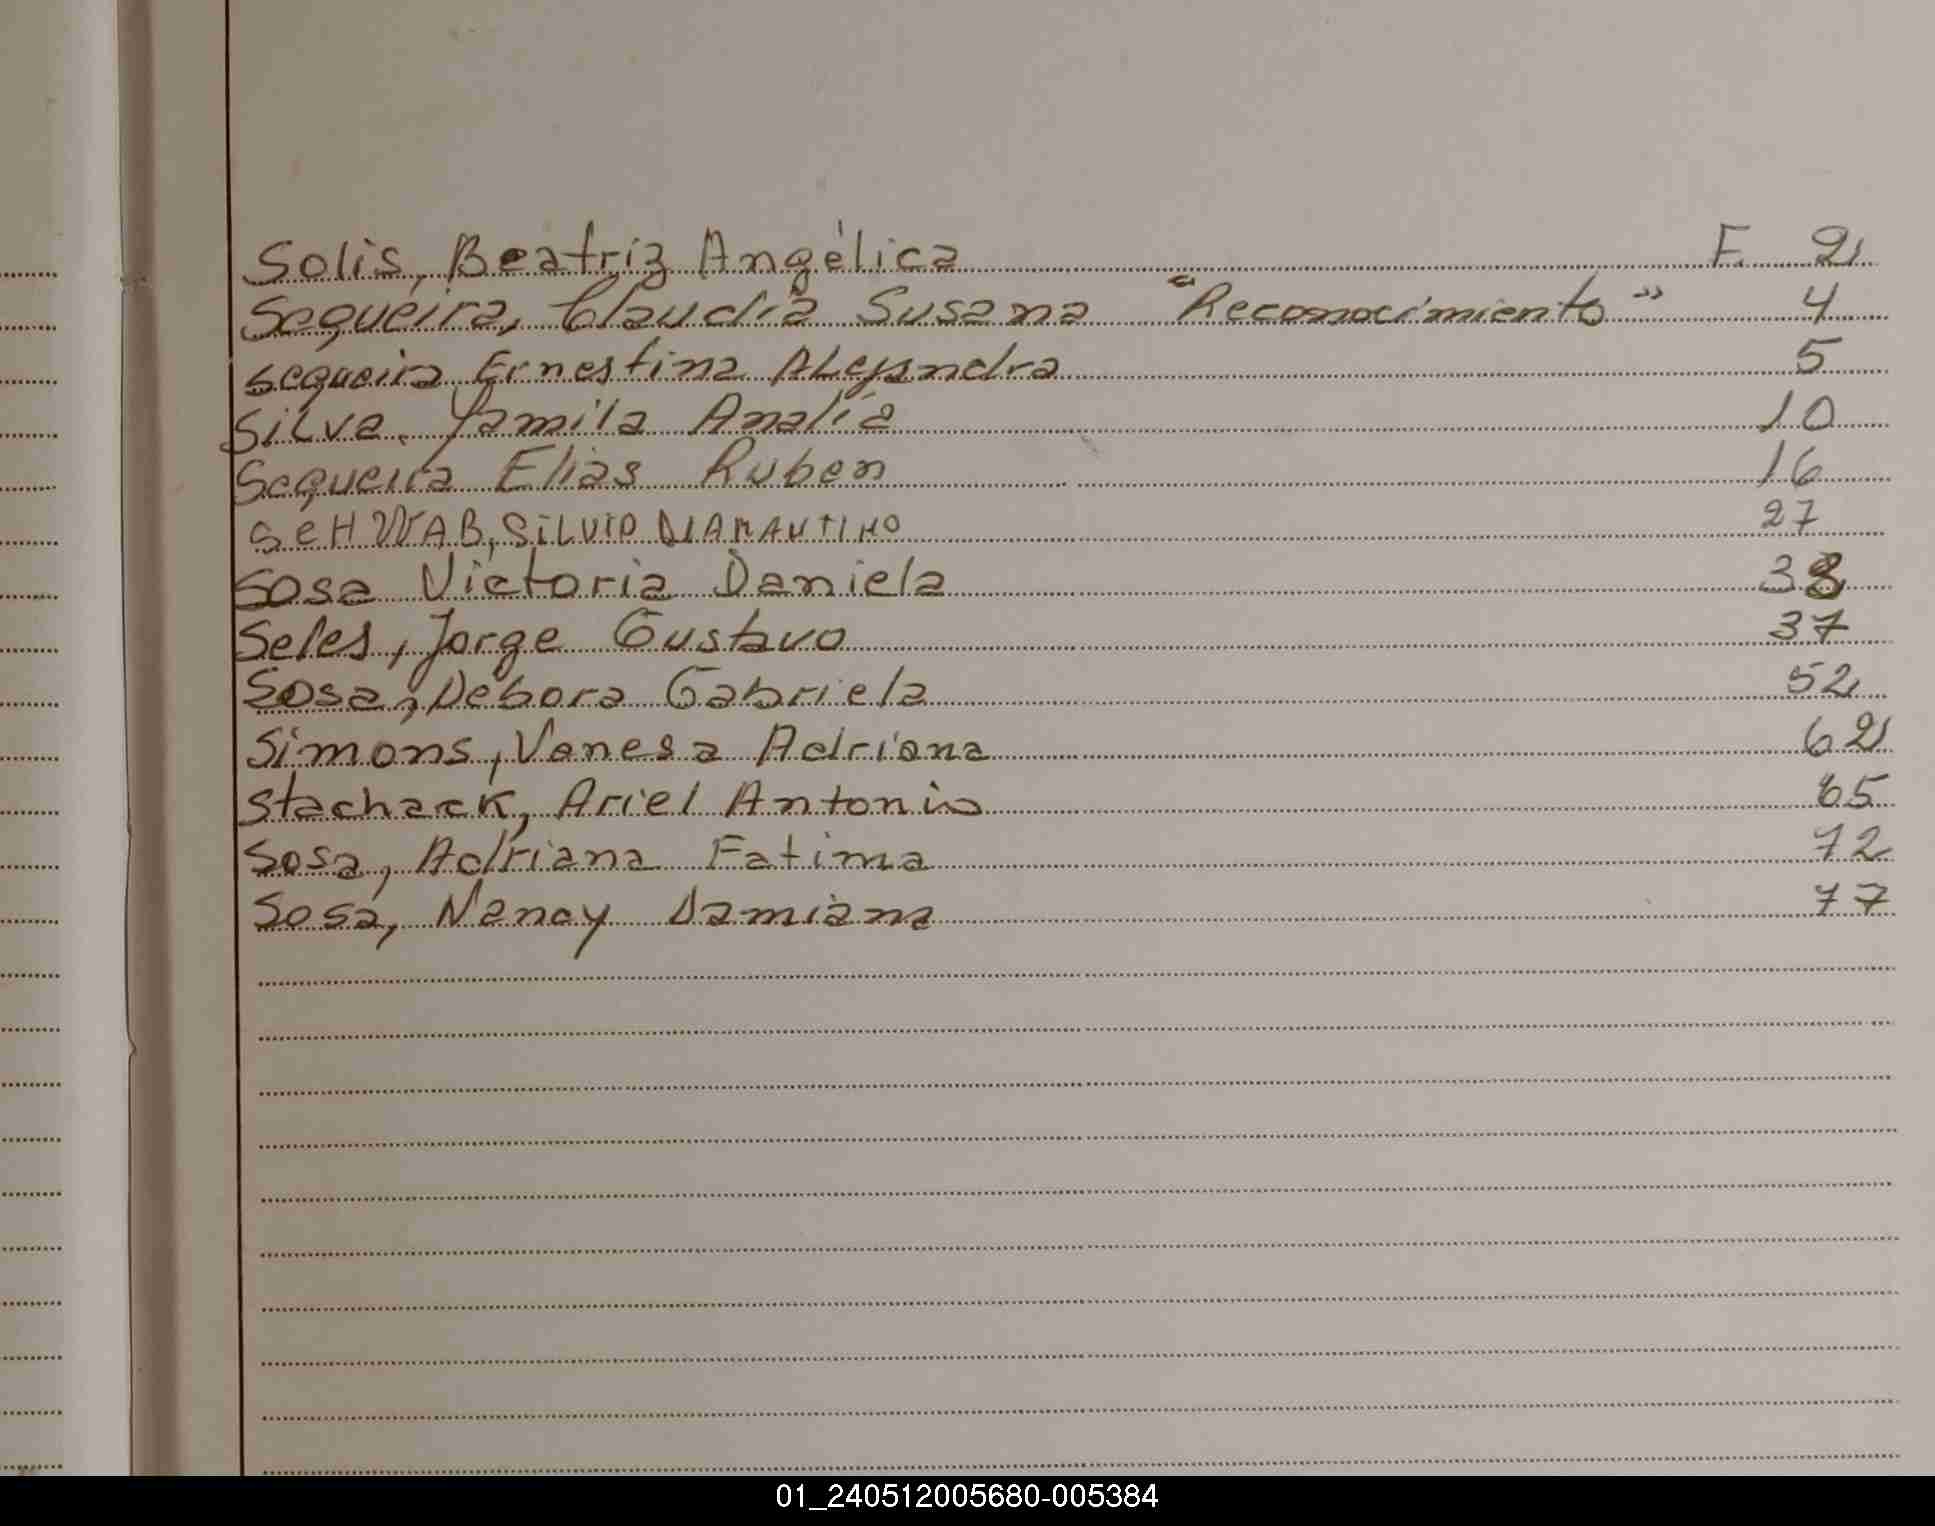 Solis, Beatriz Angélica F. 2
Sequeira, Claudia Susana "Reconocimiento" 4
Sequeira, Ernestina ALejandra 5
SiLva. Yamila Analía 10
Sequeira Elias Ruben 16
SCHWAB, SiLVIO DIAMANTINO 27
Sosa Victoria Daniela 38
Seles, Jorge Gustavo 37
Sosa, Debora Gabriela 52
Simons, Vanesa Adriana 62
Stachack, Ariel Antonio 65
Sosa, Adriana Fatima 72
Sosa, Nancy Damiana 77
01_240512005680-005384